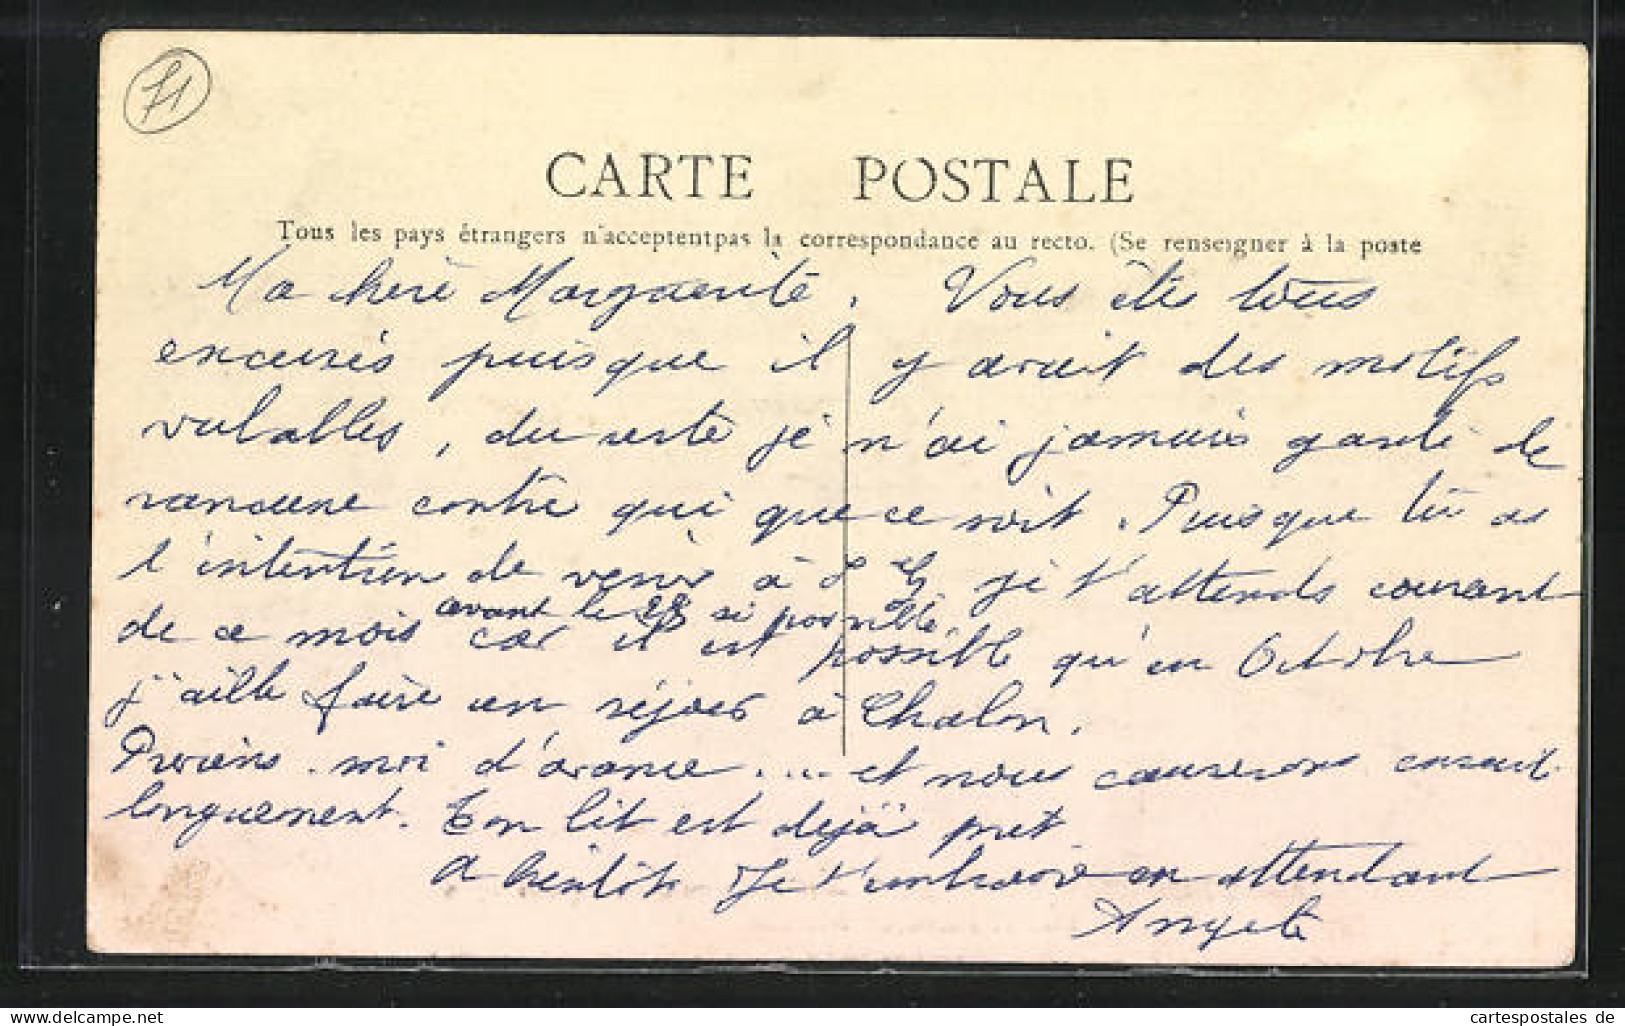 71
CARTE POSTALE
Tous les pays étrangers n'acceptentpas la correspondance au recto. (Se renseigner à la poste
Ma chère Marguerite. Vous êtes tous
excusés puisque il y avait des motifs
valables, du reste je n'ai jamais gardé de
rancune contre qui que ce soit. Puisque tu as
l'intention de venir à St G je t'attends courant
avant le 28 si possible
de ce mois car il est possible qu'en Octobre
j'aille faire un séjour à Chalon.
Préviens-moi d'avance.... et nous causerons ensuite
longuement. Ton lit est déjà pret
A bientôt Je t'embrasse en attendant
Angele
delcampe.net
cartespostales de